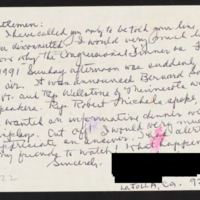 tlemen:
I have called you only to be told your line
disconnected. I would very much like
know why the Congressional Dinner on
1991 Sunday afternoon was suddenly
air. It was announced Bernard Sa
Vt. and Rep Wellstone of Minnesota we
speakers. Rep. Robert Michels spoke,
wanted an informative dinner
Cut off. I would very much
appreciate an answer.
my friends to watch! What happen
Sincerely,
LaJolla, Ca. 92